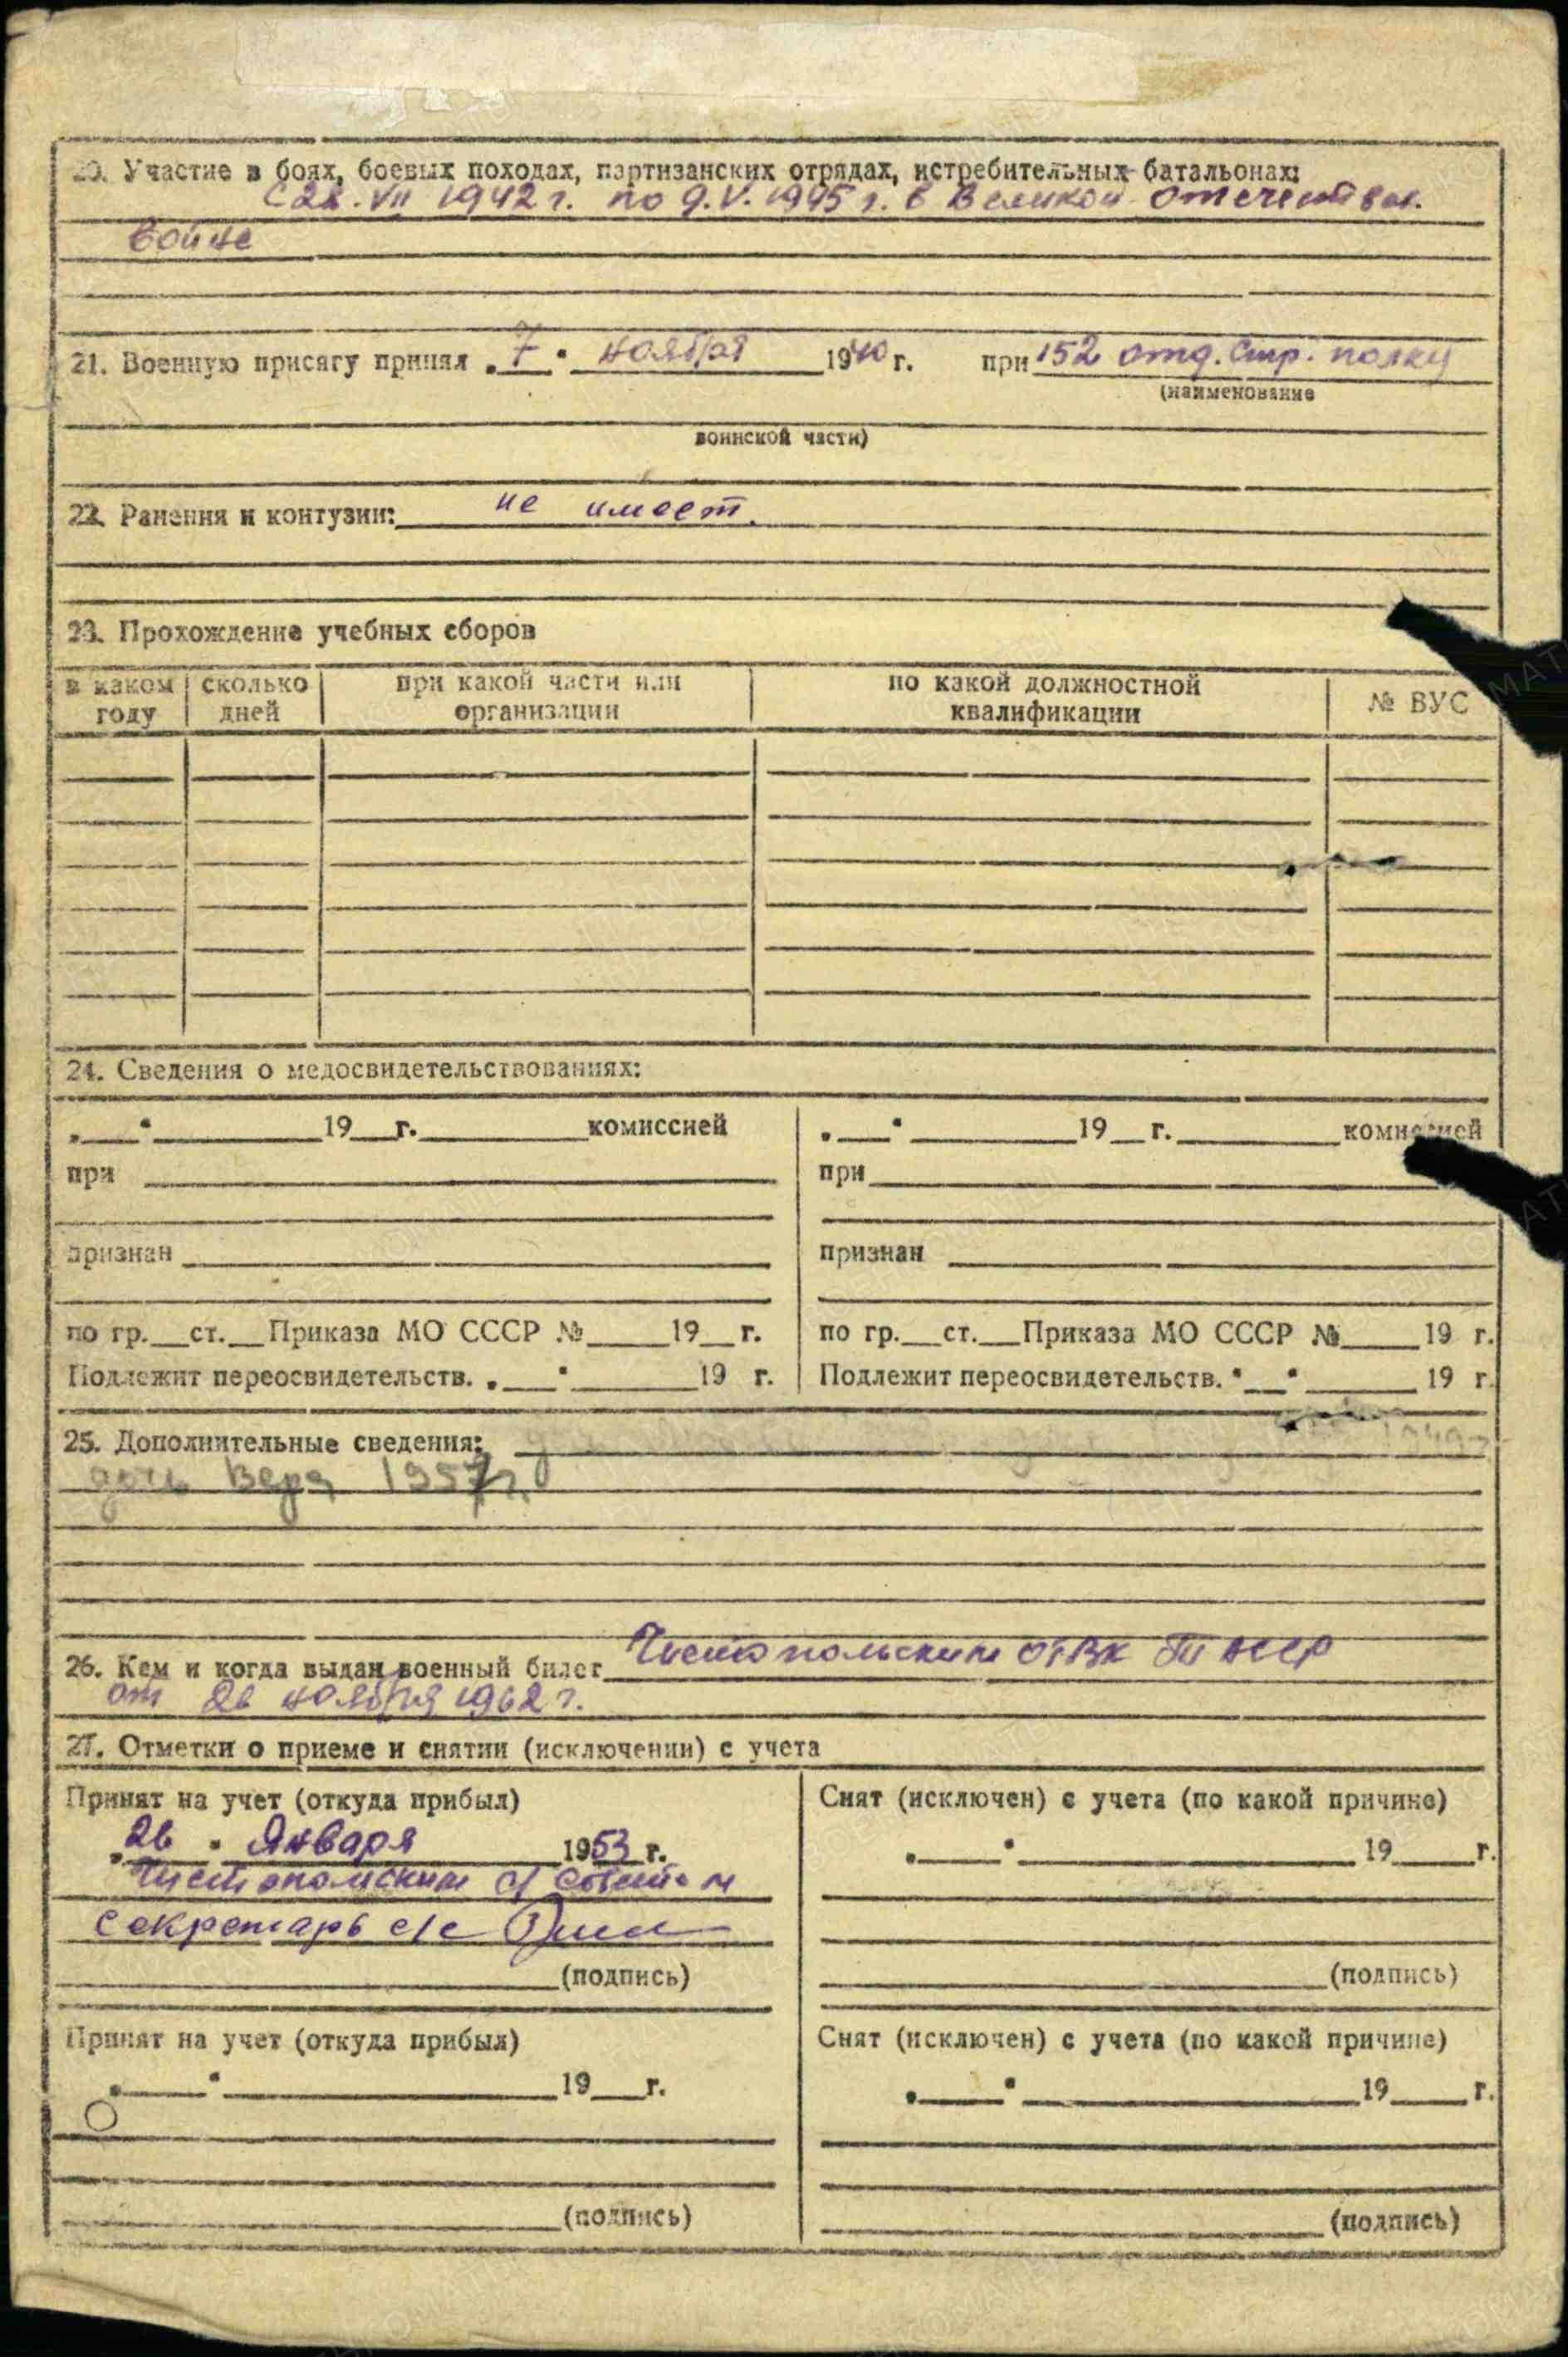 20. Участие в боях, боевых походах, партизанских отрядах, истребительных батальонах:
с 28. VII 1942 г. по 9. V. 1945 г. в Великой отечествен.
войне
21. Военную присягу принял „7“ ноября 1940 г. при 152 отд. стр. полку
(наименование
воинской части)
22. Ранения и контузии: не имеет.
23. Прохождение учебных сборов
в каком году | сколько дней | при какой части или организации | по какой должностной квалификации | № ВУС
24. Сведения о медосвидетельствованиях:
„__“ ______ 19__г. ______ комиссией „__“ ______ 19__г. ______ комиссией
при при
признан признан
по гр.__ст.__Приказа МО СССР №____19__г. по гр.__ст.__Приказа МО СССР №____19 г.
Подлежит переосвидетельств. „__“ ______19 г. Подлежит переосвидетельств. "__" ______ 19 г.
25. Дополнительные сведения:
дочь Вера 1957г.
26. Кем и когда выдан военный билет Чистопольским ОГВК ТАССР
от 26 ноября 1962 г.
27. Отметки о приеме и снятии (исключении) с учета
Принят на учет (откуда прибыл) Снят (исключен) с учета (по какой причине)
„26“ Января 1953 г. „__“ ______ 19__г.
Чистопольским с/советом
секретарь с/с
(подпись) (подпись)
Принят на учет (откуда прибыл) Снят (исключен) с учета (по какой причине)
„__“ ______ 19__г. „__“ ______ 19__г.
(подпись) (подпись)